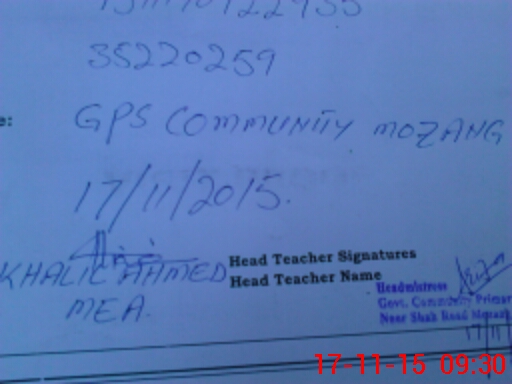 35220259
e: GPS COMMUNITY MOZANG
17/11/2015.
Head Teacher Signatures
KHALIC AHMED Head Teacher Name
MEA.
Headmistress
Govt. Community Primar
Near Shah Road Mozang
17/11
17-11-15 09:30